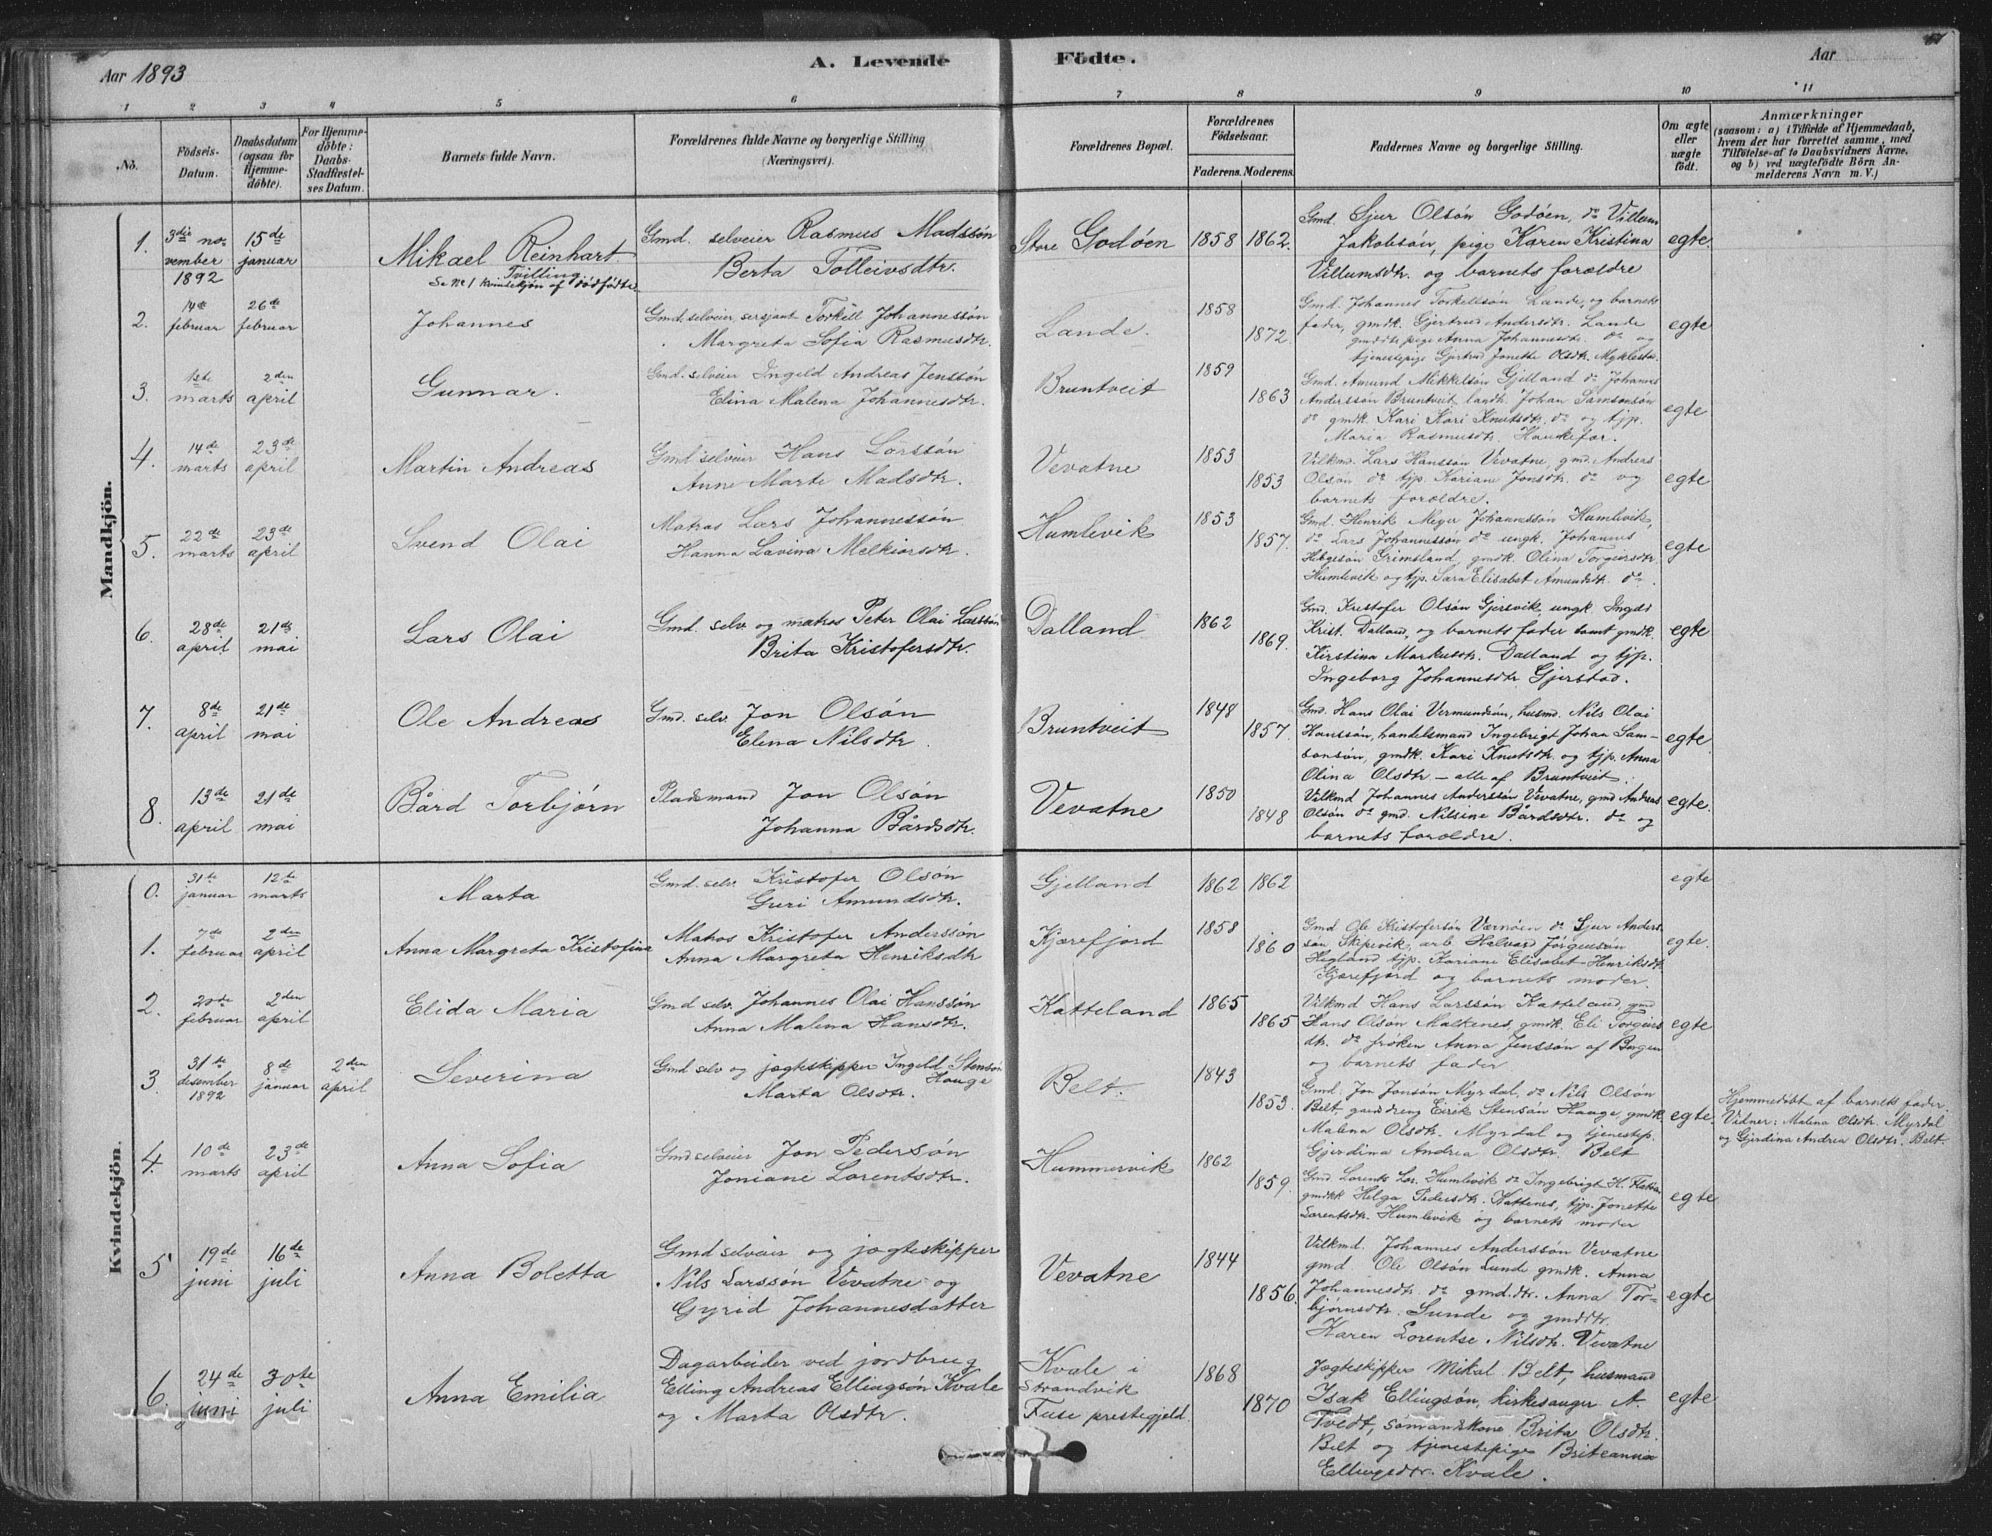 Aar 1893
A. Levende
Födte.
Aar
1 2 3 4 5 6 7 8 9 10 11
No.
Födsels-
Datum.
Daabsdatum
(ogsaa for
Hjemme-
døbte).
For Hjemme-
døbte:
Daabs-
Stadfæstel-
ses Datum.
Barnets fulde Navn.
Forældrenes fulde Navne og borgerlige Stilling
(Næringsvei).
Forældrenes Bopæl.
Forældrenes
Födselsaar.
Faderens. Moderens.
Faddernes Navne og borgerlige Stilling.
Om ægte
eller
uægte
født.
Anmærkninger
(saasom: a) i Tilfælde af Hjemmedaab,
hvem der har forrettet samme, med
Tilföielse af to Daabsvidners Navne,
og b) ved uægtefödte Börn An-
melderens Navn m. V.)
Mandkjön.
1.
3die no-
vember
1892
15de
januar
Mikael Reinhart
Tvilling
Se No 1 kvindekjøn af dødfødte
Gmd. selveier Rasmus Madssön
Berta Tolleivsdtr.
Store Godöen
1858 1862.
Gmd. Sjur Olsön Godöen, do Villum
Jakobsön, pige Karen Kristina
Villumsdtr. og barnets forældre
egte.
2.
14de
februar
26de
februar
Johannes
Gmd. selveier, sersjant Torkill Johannessön
Margreta Sofia Rasmusdtr.
Lande.
1858
1872.
Gmd. Johannes Torkellsön Lande, og barnets
fader, gmdk. Gjertrud Andersdtr. Lande
gmddtr pige Anna Johannesdtr. do og
tjenestepige Gjertrud Jonette Olsdtr. Myklestv.
egte
3.
1ste
marts
2den
april
Gunnar.
Gmd. selveier Ingeld Andreas Jenssön
Elina Malena Johannesdtr.
Bruntveit
1859
1863
Gmd. Amund Mikkelsön Gjelland do Johannes
Anderssön Bruntveit landh. Johan Samsonsön
do gmdk. Kari Kari Knutsdtr. do og tjp.
Maria Rasmusdtr. Haukefær.
egte
4.
14de
marts
23de
april
Martin Andreas
Gmd. selveier Hans Larssön
Anne Marte Madsdtr.
Vevatne
1853
1853
Vilkmd. Lars Hanssön Vevatne, gmd. Andreas
Olsön do tjp. Kariane Jonsdtr. do og
barnets forældre.
egte
5.
22de
marts
23de
april
Svend Olai
Matros Lars Johannessön
Hanna Lavina Melkiorsdtr.
Humlevik
1853
1857.
Gmd. Henrik Meyer Johannessön Humlevik,
do Lars Johannessön do ungk. Johannes
Helgesön Grimsland, gmdk. Olina Torgersdtr
Humlevik og tjp. Sara Elisabet Amundsdtr. do.
egte
6.
28de
april.
21de
mai
Lars Olai
Gmd. selv. og matros Peter Olai Larssön
Brita Kristofersdtr.
Dalland
1862
1869.
Gmd. Kristofer Olsön Gjersvik, ungk. Ingdi
Krist. Dalland, og barnets fader samt gmdk.
Kirstina Markusdtr. Dalland og tjp.
Ingeborg Johannesdtr Gjerstad.
egte
7.
8de
april
21de
mai
Ole Andreas
Gmd. selv. Jon Olsön
Elena Nilsdtr.
Bruntveit
1848
1857.
Gmd. Hans Olai Vermundsön, husmd. Nils Olai
Hanssön, handelsmand Ingebrigt Johan Sam-
sonsön, gmdk. Kari Knutsdtr. og tjp. Anna
Olina Olsdtr – alle af Bruntveit.
egte.
8.
13de
april
21de
mai
Bård Torbjörn
Pladsmand Jon Olsön
Johanna Bårdsdtr.
Vevatne
1850
1848
Vilkmd Johannes Anderssön Vevatne, gmd Andreas
Olsön do gmd. Nilsine Bårdsdtr. do og
barnets forældre.
egte.
Kvindekjön.
0.
31te
januar
12te
marts
Marta
Gmd. selv. Kristofer Olsön
Guri Amundsdtr.
Gjelland
1862 1862
egte
1.
7de
februar
2den
april
Anna Margreta Kristofina
Matros Kristofer Anderssön
Anna Margreta Henriksdtr
Kjærefjord
1858
1860
Gmd Ole Kristofersön Værnöen do Sjur Anders-
sön Skipevik, arb Halvard Jörgensön
Hegland tjp. Kariane Elisabet Henriksdtr
Kjærefjord og barnets moder.
egte.
2.
20de
februar
2den
april
Elida Maria
Gmd selv. Johannes Olai Hanssön
Anna Malena Hansdtr.
Katteland
1865
1865
Vilkmd Hans Larssön Katteland, gmd
Hans Olsön Malkenes, gmdk. Eli Torgiers
dtr. do fröken Anna Jenssön af Bergen
og barnets fader
egte
3.
31te
desember
1892
8de
januar
2den
april
Severina
Gmd selv og jagteskipper Ingeld Stensön
Hauge
Marta Olsdtr.
Belt.
1843
1853.
Gmd. Jon Jonsön Myrdal, do Nils Olsön
Belt, gmddreng Eirik Stensön Hauge, gmdk
Malena Olsdtr. Myrdal og tjenestep.
Gjerdina Andrea Olsdtr. Belt
egte.
Hjemmedöbt af barnets fader.
Vidner: Malena Olsdtr. Myrdal
og Gjerdina Andrea Olsdtr. Belt.
4.
10de
marts
23de
april
Anna Sofia
Gmd selveier Jon Pedersön
Joniane Lorentsdtr.
Hummervik
1862
1859.
Gmd. Lorents Lar. Humlevik do Ingebrigt H.
gmdkk Helga Pedersdtr. Kattenes, tjp. Jonette
Lorentsdtr. Humlevik og barnets moder
egte
5
19de
juni
16de
juli
Anna Boletta
Gmd selveier og jagteskipper
Nils Larssön Vevatne og
Gyrid Johannesdatter
Vevatne
1844
1856.
Vilkmd. Johannes Anderssön Vevatne
gmd. Ole Olsön Lund gmdk. Anna
Johannesdtr. do gmd.dtr. Anna Tor-
bjørnsdtr. Sunde og gmddtr.
Karen Lorentse Nilsdtr. Vevatne
egte
6.
24de
juni
30te
juli
Anna Emilia
Dagarbeider ved jordbrug
Elling Andreas Ellingsön Kvale
og Marta Olsdtr.
Kvale i
Strandvik
Fuse prestegjeld.
1868
1870
Jagteskipper Mikal Belt, husmand
Isak Ellingsön, kirkesanger A.
Tvedt, sömandskone Brita Olsdtr.
Belt og tjenestepige Briteanna
Ellingsdtr. Kvale.
egte